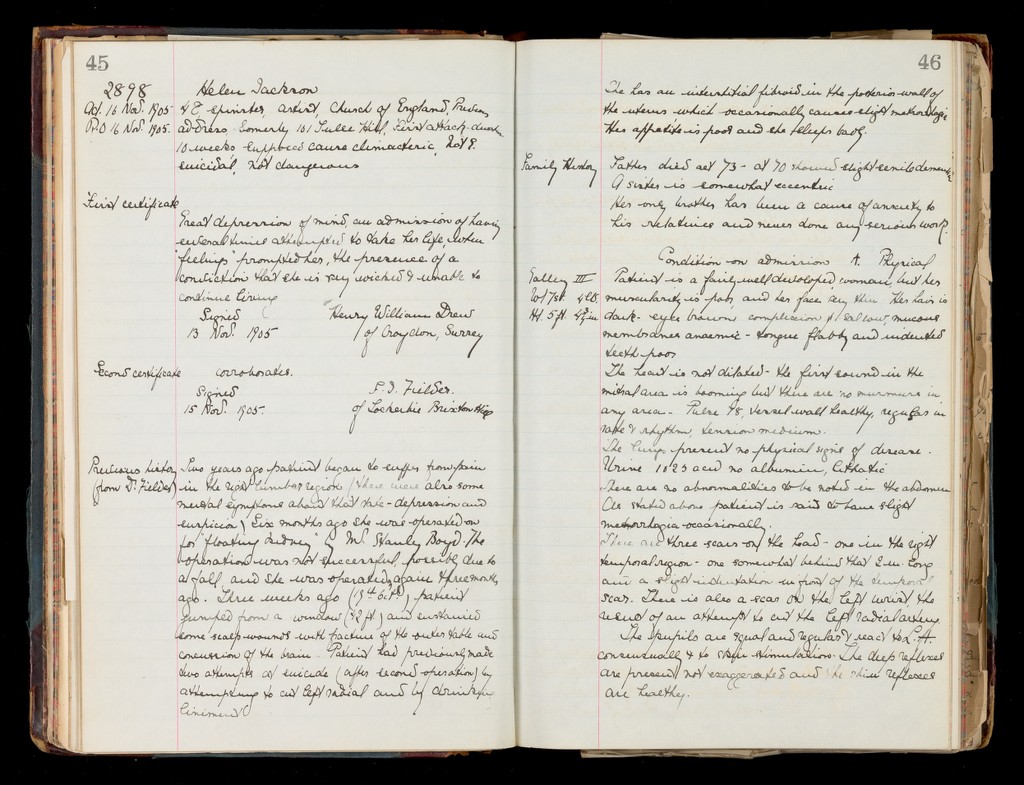 45
2898 Helen Jackson
Act. 16 Nov. 1905 48 spinster, artist, Church of England, Previous
R.O 16 Nov. 1905. address Somerly, 101 Tulse Hill, First attack duration
10 weeks supposed cause climacteric, Not E.
suicidal, not dangerous
First certificate
Great depression of mind, an admission of having
several times attempted to take her life, when
"feelings" prompted her, the presence of a
conviction that she is very wicked & unable to
continue living
Signed Henry William Drew
13 Nov. 1905 of Croydon, Surrey
Second certificate corroborates.
Signed F. J. Fielder.
15 Nov. 1905. of Lockerbie Brixton Hill
Previous history Two years ago patient began to suffer from pain
(from Dr. Fielder) in the right lumbar region (there were also some
mental symptoms about that time - depression and
suspicion) Six months ago she was operated on
for "floating kidney" by Mr. Stanley Boyd. The
operation was not successful, possibly due to
a fall, and she was operated again three months
ago. Three weeks ago (19th Oct.) patient
jumped from a window (42 ft) and sustained
some scalp wounds with fracture of the outer table and
concussion of the brain. Patient had previously made
two attempts at suicide (after second operation) by
attempting to cut left radial and by drinking
liniment
46
She has an interstitial fibroid in the posterior wall of
the uterus which occasionally causes slight metrorrhagia
Her appetite is poor and she sleeps badly.
Family History Father died aet 73 - at 70 showed slight senile dementia
A sister is somewhat eccentric
Her only brother has been a cause of anxiety to
his relatives and never done any serious work.
Condition on admission A. Physical
Galley III Patient is a fairly well developed woman, but her
Wt 7st 4lb. muscularity is poor, and her face very thin Her hair is
Ht. 5ft. 4¾in dark - eyes brown complexion sallow, mucous
membranes anaemic - tongue flabby and indented
teeth poor
The heart is not dilated - the first sound in the
mitral area is booming but there are no murmurs in
any area. Pulse 78, vessel wall healthy, regular in
rate & rhythm, tension medium.
The lungs present no physical signs of disease.
Urine 1025 acid no albumin, lithatic
There are no abnormalities to be noted in the abdomen
As stated above patient is said to have slight
metrorrhagia occasionally.
There are three scars on the head - one in the right
temporal region - one somewhat behind that 2 in. long
and a slight indentation in front of the temporal
scar. There is also a scar on the left wrist the
result of an attempt to cut the left radial artery.
The pupils are equal and regular & react to L. A.
consensually & to skin stimulation. The deep reflexes
are present, not exaggerated and the skin reflexes
are healthy.